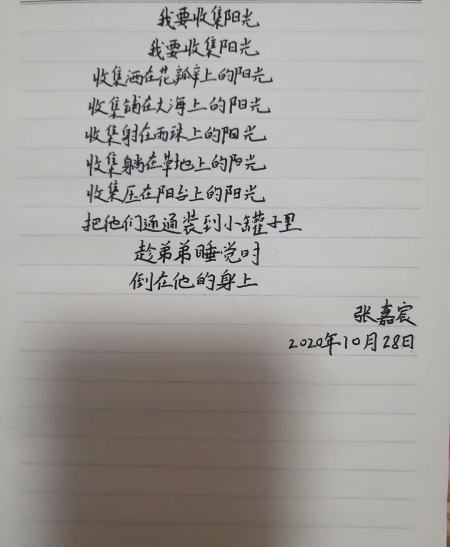 我要收集阳光
我要收集阳光
收集洒在花瓣上的阳光
收集铺在大海上的阳光
收集射在雨珠上的阳光
收集躺在草地上的阳光
收集压在阳台上的阳光
把他们通通装到小罐子里
趁弟弟睡觉时
倒在他的身上
张嘉宸
2020年10月28日